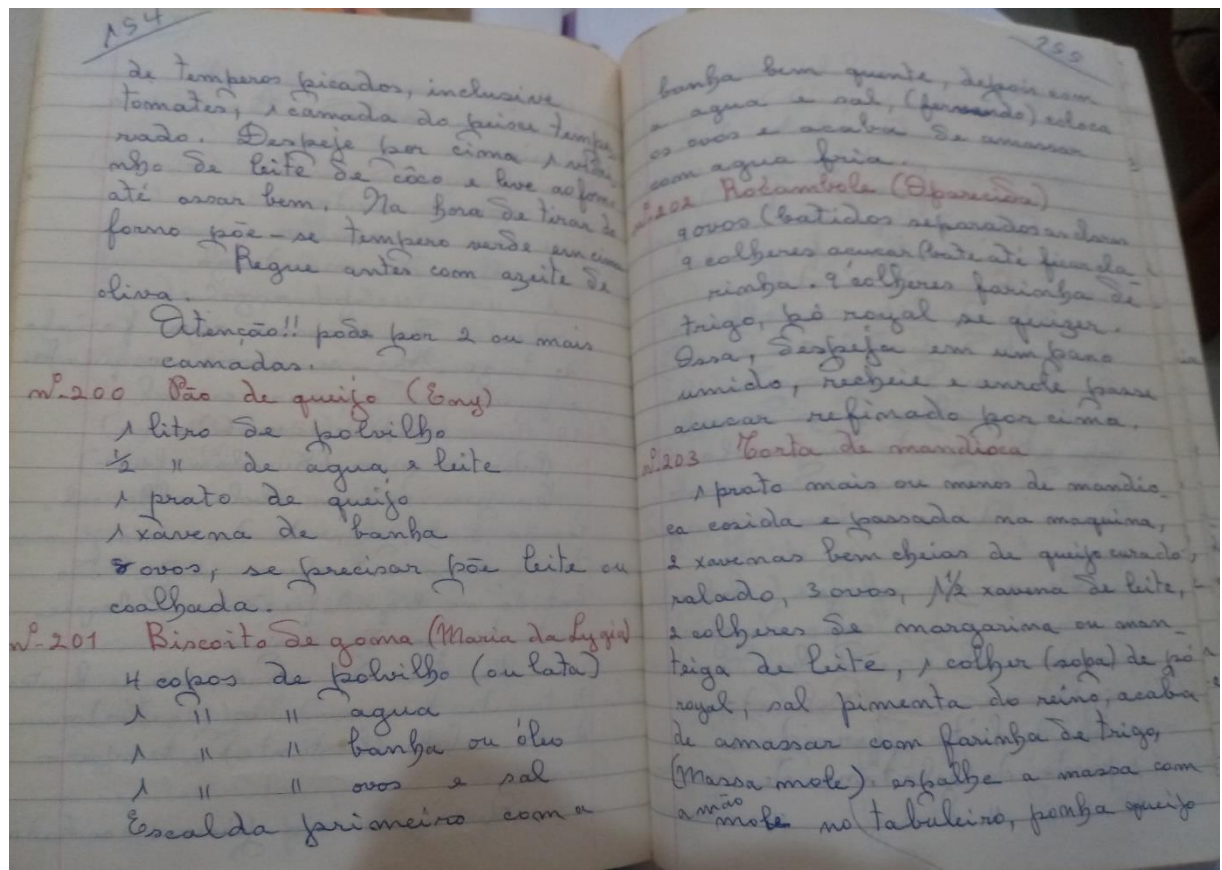 154
de temperos picados, inclusive
tomates, 1 camada do peixe tempe
rado. Despeje por cima 1 vidri
nho de leite de côco e leve ao forno
até assar bem. Na hora de tirar do
forno põe-se tempero verde em cima
Regue antes com azeite de
oliva.
Atenção!! pode por 2 ou mais
camadas.
nº-200 Pão de queijo (Eny)
1 litro de polvilho
1/2 " de água e leite
1 prato de queijo
1 xavena de banha
8 ovos, se precisar põe leite ou
coalhada.
nº-201 Biscoito de goma (Maria da Lygia)
4 copos de polvilho (ou lata)
1 " " agua
1 " " banha ou óleo
1 " " ovos e sal
Escalda primeiro com a
255
banha bem quente, depois com
a agua e sal, (fervendo) coloca
os ovos e acaba de amassar
com agua fria.
nº-202 Rocambole (Aparecida)
9 ovos (batidos separados as claras
9 colheres acucar (bate até
9 colheres farinha de
trigo, pó royal se quizer.
Assa, despeja em um pano
umido, recheie e enrole passe
acucar refinado por cima.
nº-203 Torta de mandioca
1 prato mais ou menos de mandio-
ca cozida e passada na maquina,
2 xavenas bem cheias de queijo curado,
ralado, 3 ovos, 1 1/2 xavena de leite,
2 colheres de margarina ou man-
teiga de leite, 1 colher (sopa) de pó
royal, sal pimenta do reino, acaba
de amassar com farinha de trigo,
(Massa mole). espalhe a massa com
a mão mole no tabuleiro, ponha queijo